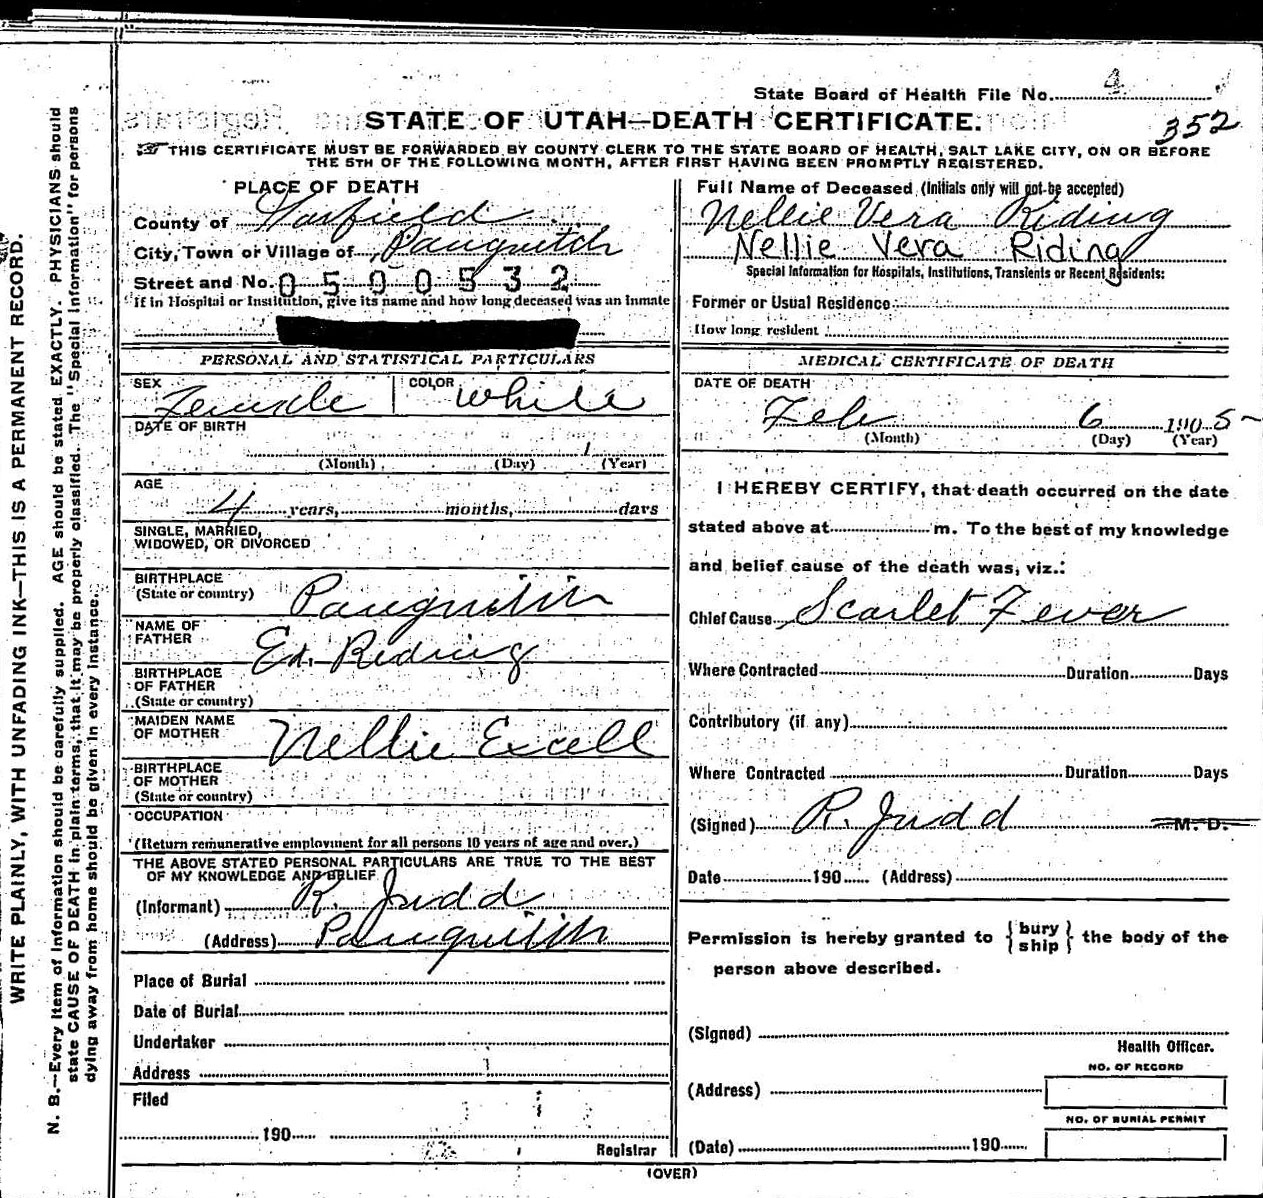 State Board of Health File No. 4
352
STATE OF UTAH—DEATH CERTIFICATE.
THIS CERTIFICATE MUST BE FORWARDED BY COUNTY CLERK TO THE STATE BOARD OF HEALTH, SALT LAKE CITY, ON OR BEFORE
THE 5TH OF THE FOLLOWING MONTH, AFTER FIRST HAVING BEEN PROMPTLY REGISTERED.
PLACE OF DEATH
County of Garfield
City, Town or Village of Panguitch
Street and No. 0500532
If in Hospital or Institution, give its name and how long deceased was an Inmate
PERSONAL AND STATISTICAL PARTICULARS
SEX Female COLOR White
DATE OF BIRTH
1
(Month) (Day) (Year)
AGE
4 years, months, days
SINGLE, MARRIED,
WIDOWED, OR DIVORCED
BIRTHPLACE
(State or country) Panguitch
NAME OF
FATHER Ed. Riding
BIRTHPLACE
OF FATHER
(State or country)
MAIDEN NAME
OF MOTHER Nellie Excell
BIRTHPLACE
OF MOTHER
(State or country)
OCCUPATION
(Return remunerative employment for all persons 10 years of age and over.)
THE ABOVE STATED PERSONAL PARTICULARS ARE TRUE TO THE BEST
OF MY KNOWLEDGE AND BELIEF
(Informant) R. Judd
(Address) Panguitch
Place of Burial
Date of Burial
Undertaker
Address
Filed
190
Registrar
Full Name of Deceased (Initials only will not be accepted)
Nellie Vera Riding
Nellie Vera Riding
Special Information for Hospitals, Institutions, Transients or Recent Residents:
Former or Usual Residence
How long resident
MEDICAL CERTIFICATE OF DEATH
DATE OF DEATH
Feb 6 1905
(Month) (Day) (Year)
I HEREBY CERTIFY, that death occurred on the date
stated above at m. To the best of my knowledge
and belief cause of the death was, viz.:
Chief Cause Scarlet Fever
Where Contracted Duration Days
Contributory (if any)
Where Contracted Duration Days
(Signed) R. Judd M. D.
Date 190 (Address)
Permission is hereby granted to {bury
ship} the body of the
person above described.
(Signed)
Health Officer.
NO. OF RECORD
(Address)
NO. OF BURIAL PERMIT
(Date) 190
(OVER)
WRITE PLAINLY, WITH UNFADING INK—THIS IS A PERMANENT RECORD.
N. B.—Every item of information should be carefully supplied. AGE should be stated EXACTLY. PHYSICIANS should
state CAUSE OF DEATH in plain terms, that it may be properly classified. The "Special Information" for persons
dying away from home should be given in every instance.